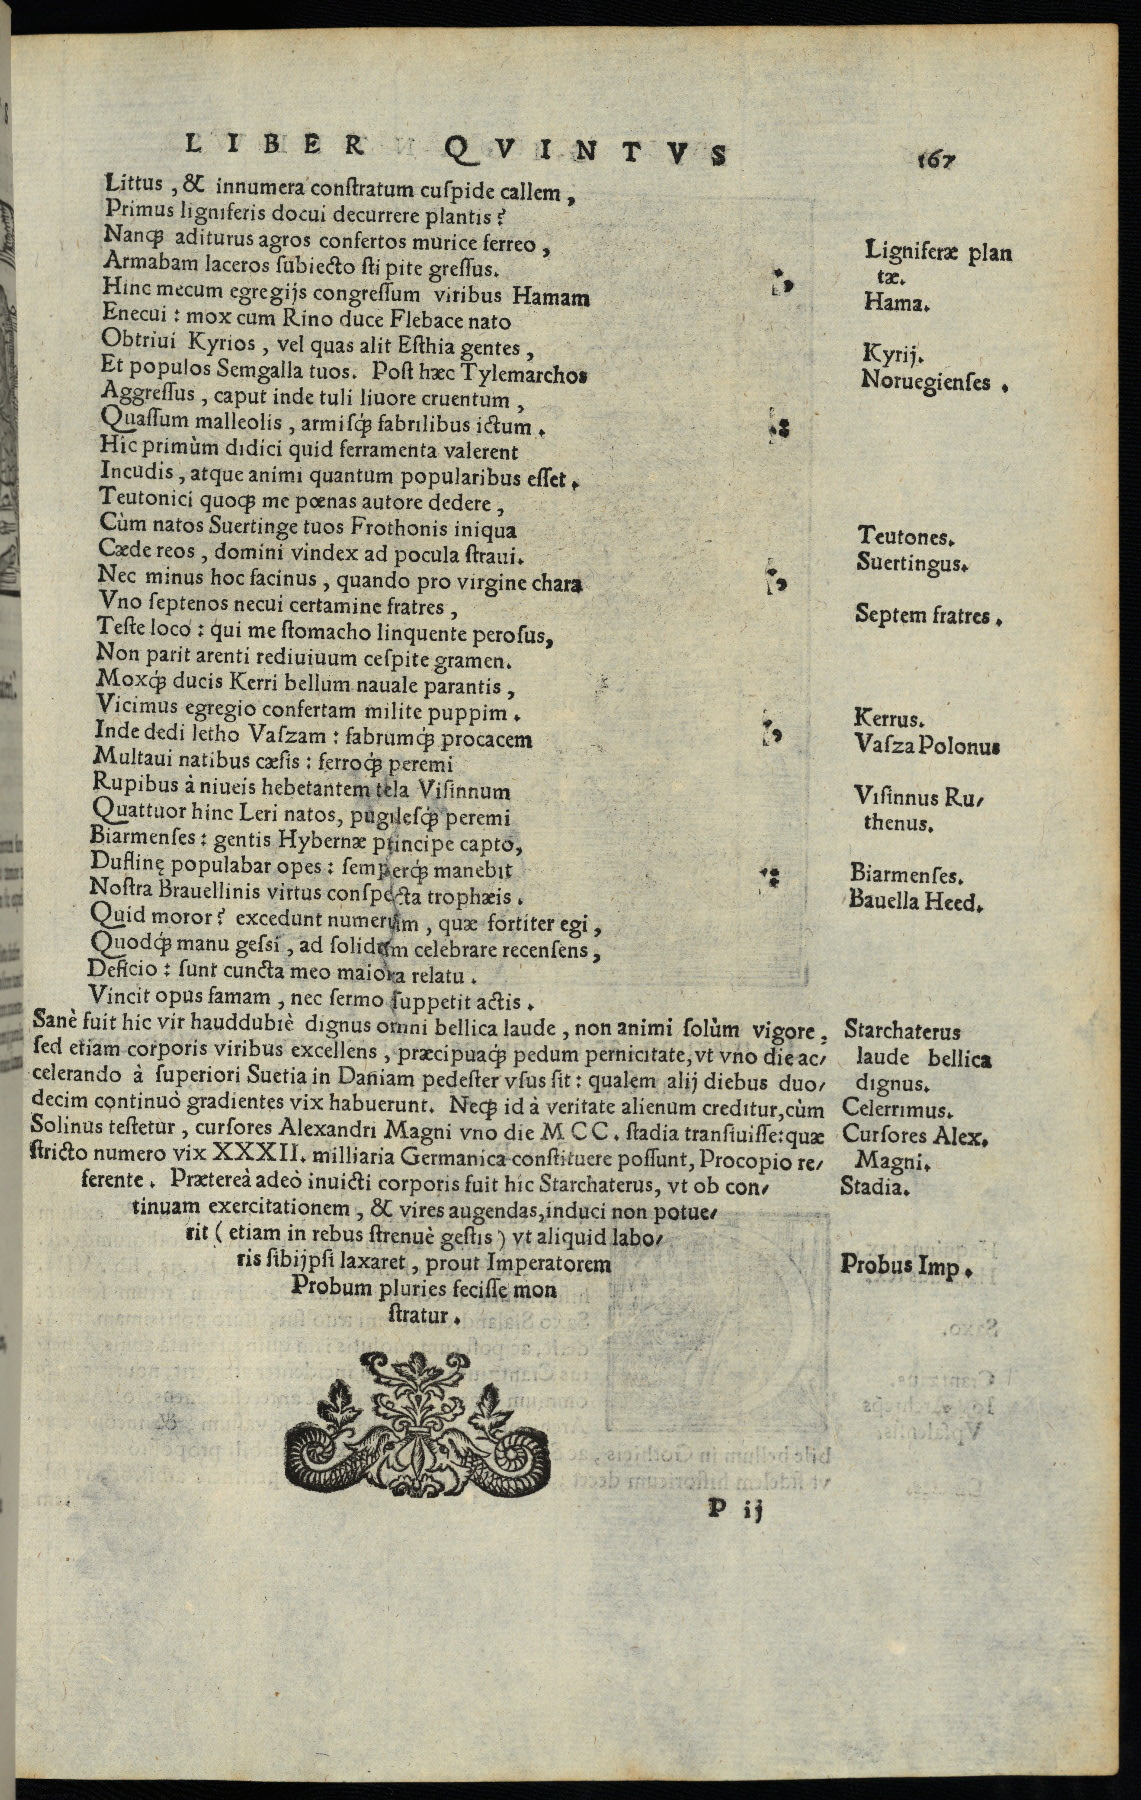 LIBER QVINTVS 167
Littus, & innumera conſtratum cuſpide callem,
Primus ligniferis docui decurrere plantis?
Nanq́ꝫ aditurus agros confertos murice ferreo,
Armabam laceros ſubiecto ſtipite greſſus.
Hinc mecum egregijs congreſſum viribus Hamam
Enecui: mox cum Rino duce Flebace nato
Obtriui Kyrios, vel quas alit Eſthia gentes,
Et populos Semgalla tuos. Poſt hæc Tylemarchos
Aggreſſus, caput inde tuli liuore cruentum,
Quaſſum malleolis, armiſq́ꝫ fabrilibus ictum.
Hic primùm didici quid ferramenta valerent
Incudis, atque animi quantum popularibus eſſet.
Teutonici quoqꝫ me pœnas autore dedere,
Cùm natos Suertinge tuos Frothonis iniqua
Cæde reos, domini vindex ad pocula ſtraui.
Nec minus hoc facinus, quando pro virgine chara
Vno ſeptenos necui certamine fratres,
Teſte loco: qui me ſtomacho linquente peroſus,
Non parit arenti rediuiuum ceſpite gramen.
Moxq́ꝫ ducis Kerri bellum nauale parantis,
Vicimus egregio confertam milite puppim.
Inde dedi letho Vaſzam: fabrumq́ꝫ procacem
Multaui natibus cæſis: ferroq́ꝫ peremi
Rupibus à niueis hebetantem tela Viſinnum
Quattuor hinc Leri natos, pugileſq́ꝫ peremi
Biarmenſes: gentis Hybernæ principe capto,
Duflinę populabar opes: ſemperq́ꝫ manebit
Noſtra Brauellinis virtus conſpecta trophæis.
Quid moror? excedunt numerum, quæ fortiter egi,
Quodq́ꝫ manu geſſi, ad ſolidum celebrare recenſens,
Deficio: ſunt cuncta meo maiora relatu.
Vincit opus famam, nec ſermo ſuppetit actis.
Sanè fuit hic vir hauddubiè dignus omni bellica laude, non animi ſolùm vigore,
ſed etiam corporis viribus excellens, præcipuaq́ꝫ pedum pernicitate, vt vno die ac/
celerando à ſuperiori Suetia in Daniam pedeſter vſus ſit: qualem alij diebus duo/
decim continuò gradientes vix habuerunt. Neqꝫ id à veritate alienum creditur, cùm
Solinus teſtetur, curſores Alexandri Magni vno die MCC. ſtadia tranſiuiſſe: quæ
ſtricto numero vix XXXII. milliaria Germanica conſtituere poſſunt, Procopio re/
ferente. Prætereà adeò inuicti corporis fuit hic Starchaterus, vt ob con/
tinuam exercitationem, & vires augendas, induci non potue/
rit (etiam in rebus ſtrenuè geſtis) vt aliquid labo/
ris ſibijpſi laxaret, prout Imperatorem
Probum pluries feciſſe mon
ſtratur.
P ij
Ligniferæ plan
tæ.
Hama.
Kyrij.
Noruegienſes.
Teutones.
Suertingus.
Septem fratres.
Kerrus.
Vaſza Polonus
Viſinnus Ru/
thenus.
Biarmenſes.
Bauella Heed.
Starchaterus
laude bellica
dignus.
Celerrimus.
Curſores Alex.
Magni.
Stadia.
Probus Imp.